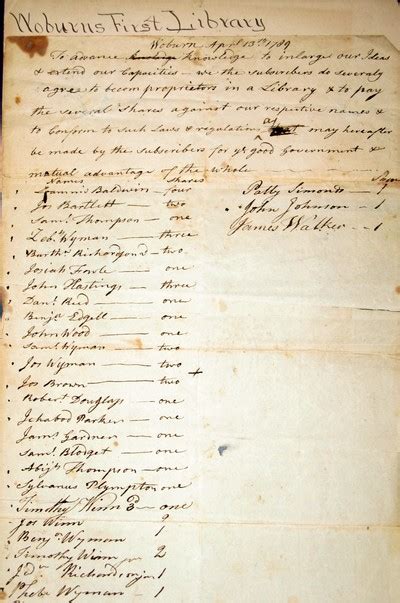 Woburns First Library
Woburn Apr! 13th 1789
To advance Knowledge to enlarge our Ideas
& extend our Capacities — we the subscribers do severaly
agree to becom proprietors in a Library & to pay
the several Shares against our respective names &
to Conform to such Laws & regulations as may hereafter
be made by the subscribers for ye good Government &
mutual advantage of the whole
Names Shares
Loammi Baldwin — four
Jos Bartlett — two
Saml Thompson — one
Zebn Wyman — three
Barthw Richardson — two
Josiah Fowle — one
John Hastings — three
Danl Reed — one
Benja Edgell — one
John Wood — one
Saml Wyman — two
Jos Wyman — two
Jos Brown — two +
Robert Douglass — one
Ichabod Parker — one
Jams Gardner — one
Saml Blodget — one
Abijh Thompson — one
Sylvanus Plympton one
Timothy Winn 3d — one
Jos Winn 2
Benja Wyman 1
Timothy Winn 2
Jr Richardson 1
Pheba Wyman — 1
Patty Simonds — 1
John Johnson — 1
James Walker — 1